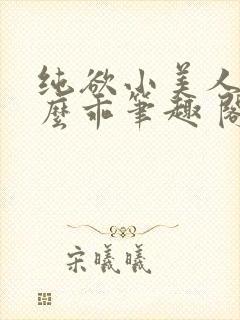 纯欲小美人
麼乖筆趣阁
宋曦曦